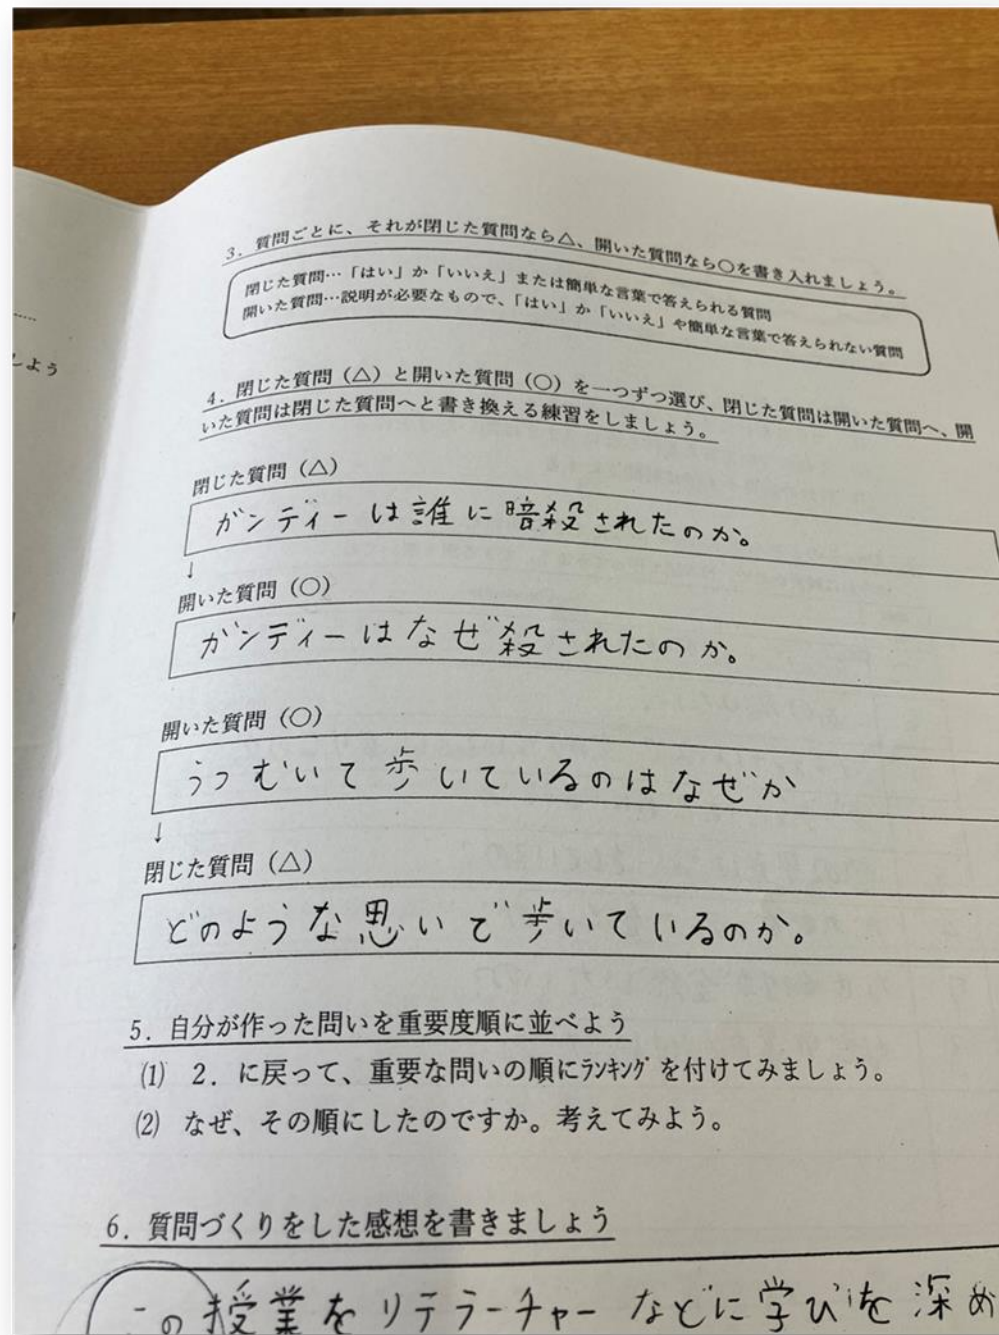 しよう
3．質問ごとに、それが閉じた質問なら△、開いた質問なら○を書き入れましょう。
閉じた質問…「はい」か「いいえ」または簡単な言葉で答えられる質問
開いた質問…説明が必要なもので、「はい」か「いいえ」や簡単な言葉で答えられない質問
4．閉じた質問（△）と開いた質問（○）を一つずつ選び、閉じた質問は開いた質問へ、開
いた質問は閉じた質問へと書き換える練習をしましょう。
閉じた質問（△）
ガンディーは誰に暗殺されたのか。
↓
開いた質問（○）
ガンディーはなぜ殺されたのか。
開いた質問（○）
うつむいて歩いているのはなぜか
↓
閉じた質問（△）
どのような思いで歩いているのか。
5．自分が作った問いを重要度順に並べよう
(1) 2．に戻って、重要な問いの順にﾗﾝｷﾝｸﾞを付けてみましょう。
(2) なぜ、その順にしたのですか。考えてみよう。
6．質問づくりをした感想を書きましょう
この授業をリテラーチャーなどに学びを深め